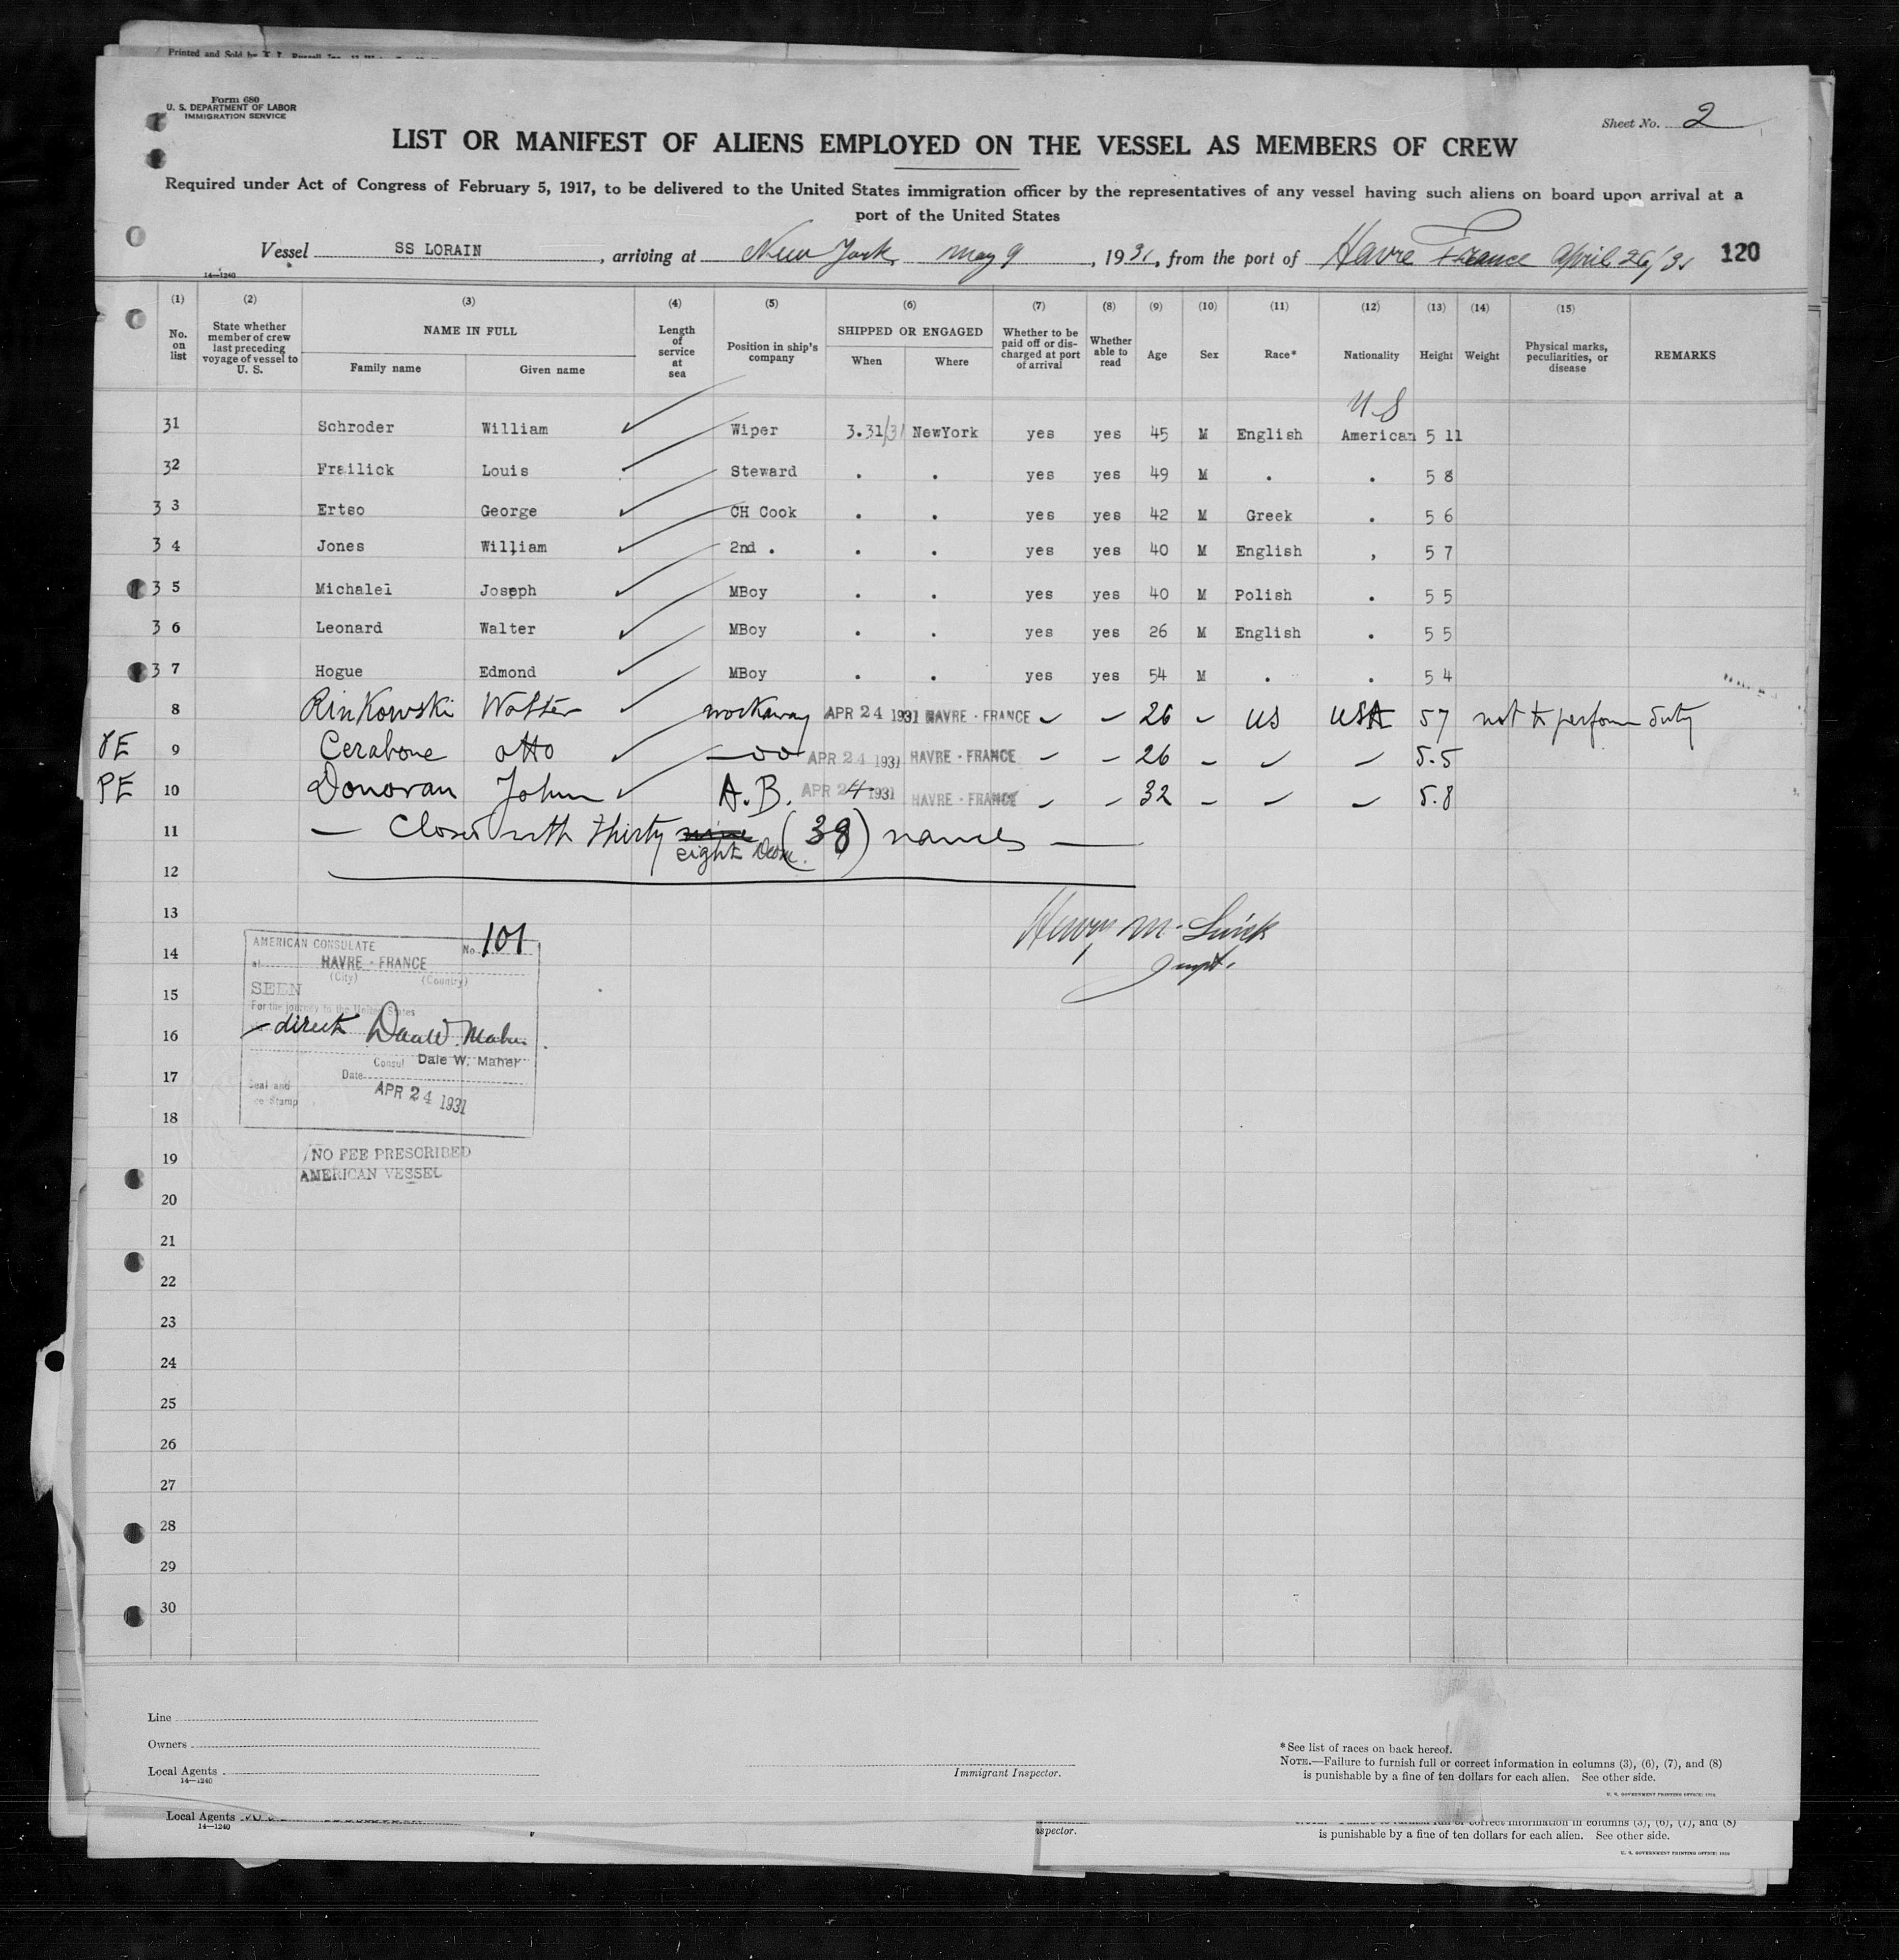 Printed and Sold by
Form 680
U. S. DEPARTMENT OF LABOR
IMMIGRATION SERVICE
Sheet No. 2
LIST OR MANIFEST OF ALIENS EMPLOYED ON THE VESSEL AS MEMBERS OF CREW
Required under Act of Congress of February 5, 1917, to be delivered to the United States immigration officer by the representatives of any vessel having such aliens on board upon arrival at a
port of the United States
Vessel SS LORAIN, arriving at New York, May 9, 1931, from the port of Havre France April 26/31 120
14—1240
(1) (2) (3) (4) (5) (6) (7) (8) (9) (10) (11) (12) (13) (14) (15)
No. on list
State whether member of crew last preceding voyage of vessel to U. S.
NAME IN FULL
Family name Given name
Length of service at sea
Position in ship's company
SHIPPED OR ENGAGED
When Where
Whether to be paid off or discharged at port of arrival
Whether able to read
Age Sex Race* Nationality Height Weight
Physical marks, peculiarities, or disease
REMARKS
U.S
31 Schroder William Wiper 3.31/31 NewYork yes yes 45 M English American 5 11
32 Frailick Louis Steward . . yes yes 49 M . . 5 8
33 Ertso George CH Cook . . yes yes 42 M Greek . 5 6
34 Jones William 2nd . . . yes yes 40 M English , 5 7
35 Michalei Joseph MBoy . . yes yes 40 M Polish . 5 5
36 Leonard Walter MBoy . . yes yes 26 M English . 5 5
37 Hogue Edmond MBoy . . yes yes 54 M . . 5 4
8 Rinkowski Walter workaway APR 24 1931 HAVRE - FRANCE 26 US USA 57 not to perform duty
9 Cerabone Otto APR 24 1931 HAVRE - FRANCE 26 5.5
PE 10 Donovan John A.B. APR 24 1931 HAVRE - FRANCE 32 5.8
11 — Closed with Thirty nine (38) names —
eight
12
13
Henry M.
14
15
16
17
18
19
20
21
22
23
24
25
26
27
28
29
30
AMERICAN CONSULATE No. 101
at HAVRE - FRANCE
(City) (Country)
SEEN
For the journey to the United States
direct Dale W. Maher
Consul Dale W. Maher
Date APR 24 1931
Seal and
Fee Stamp
NO FEE PRESCRIBED
AMERICAN VESSEL
Line
Owners
Local Agents
14—1240
Immigrant Inspector.
*See list of races on back hereof.
NOTE.—Failure to furnish full or correct information in columns (3), (6), (7), and (8)
is punishable by a fine of ten dollars for each alien. See other side.
U. S. GOVERNMENT PRINTING OFFICE:
Local Agents
14—1240
spector.
correct information in columns (3), (6), (7), and (8)
is punishable by a fine of ten dollars for each alien. See other side.
U. S. GOVERNMENT PRINTING OFFICE: